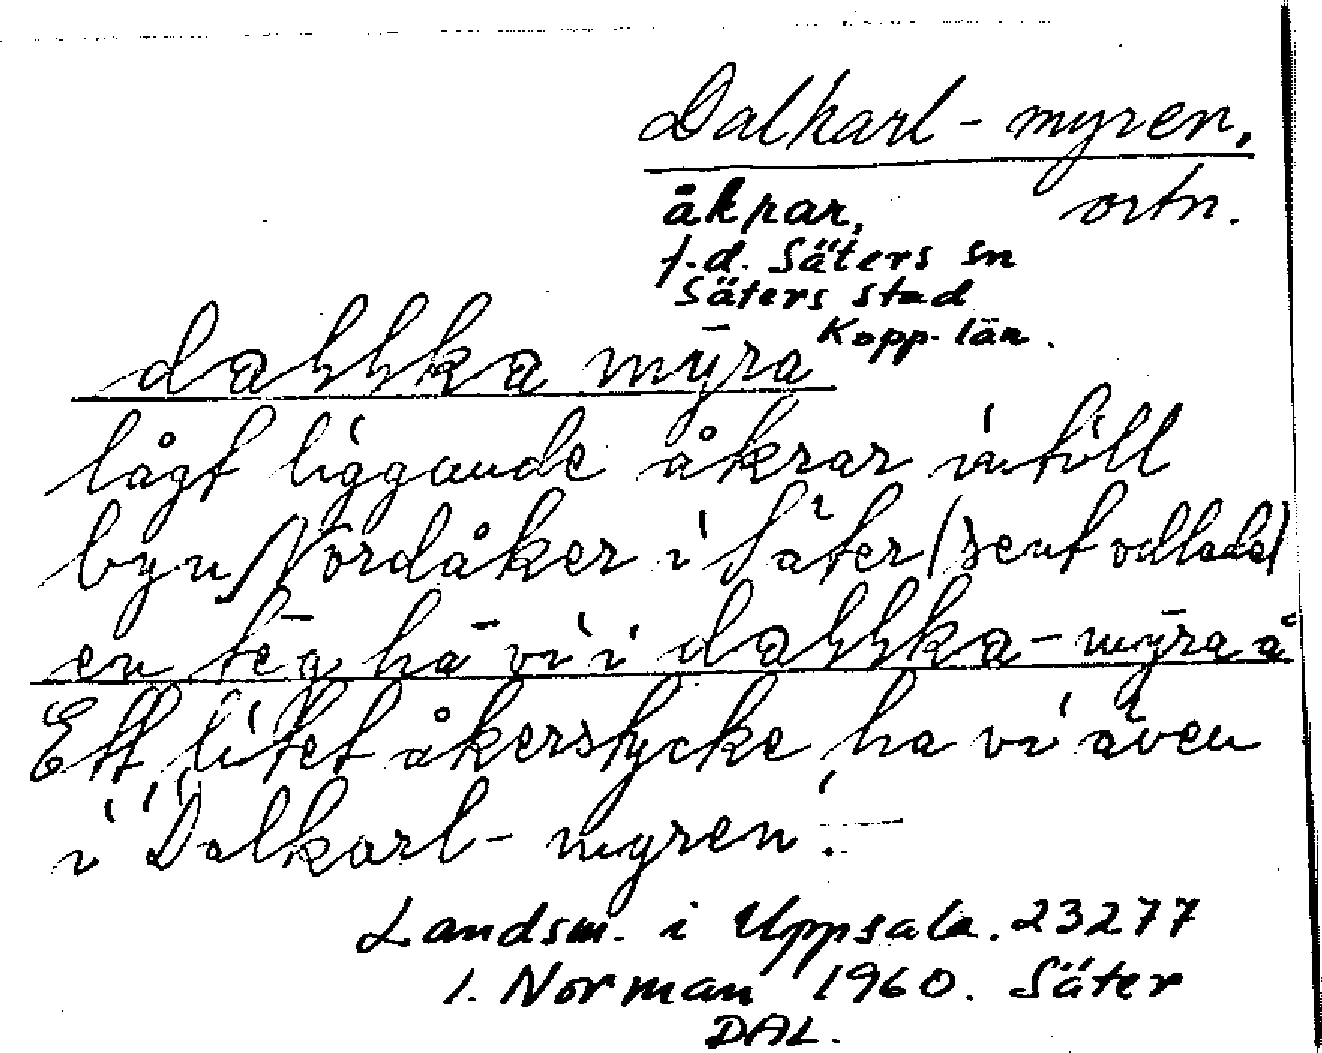 Dalkarl-myren,
åkrar, ortn.
f.d. Säters sn
Säters stad
Kopp. län.
dahhka mȳra
lågt liggande åkrar intill
byn Nordåker i Säter (sent odlade)
en tēg hā vi i dahhka-mȳra å
Ett litet åkerstycke ha vi även
i "Dalkarl-myren".
Landsm. i Uppsala. 23277
I. Norman 1960. Säter
DAL.